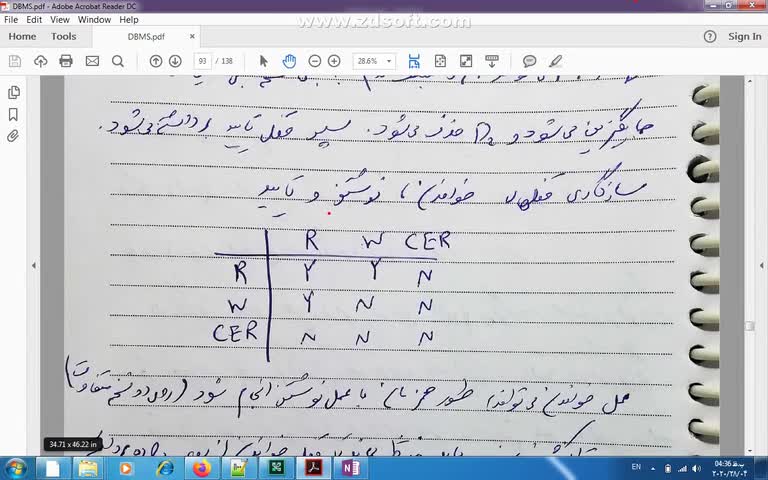 DBMS.pdf - Adobe Acrobat Reader DC
www.zdsoft.com
File Edit View Window Help
Home Tools DBMS.pdf × Sign In
93 / 138 28.6%
جایگزین می‌شود و D₂ حذف می‌شود. سپس قفل تایید برداشته می‌شود.
سازگاری قفلهای خواندن، نوشتن و تایید
R W CER
R Y Y N
W Y N N
CER N N N
عمل خواندن می‌تواند بطور همزمان با عمل نوشتن انجام شود (روی دو نسخه متفاوت)
34.71 x 46.22 in
EN 04:36 ب.ظ
۲۰۲۰/۲۸/۰۴